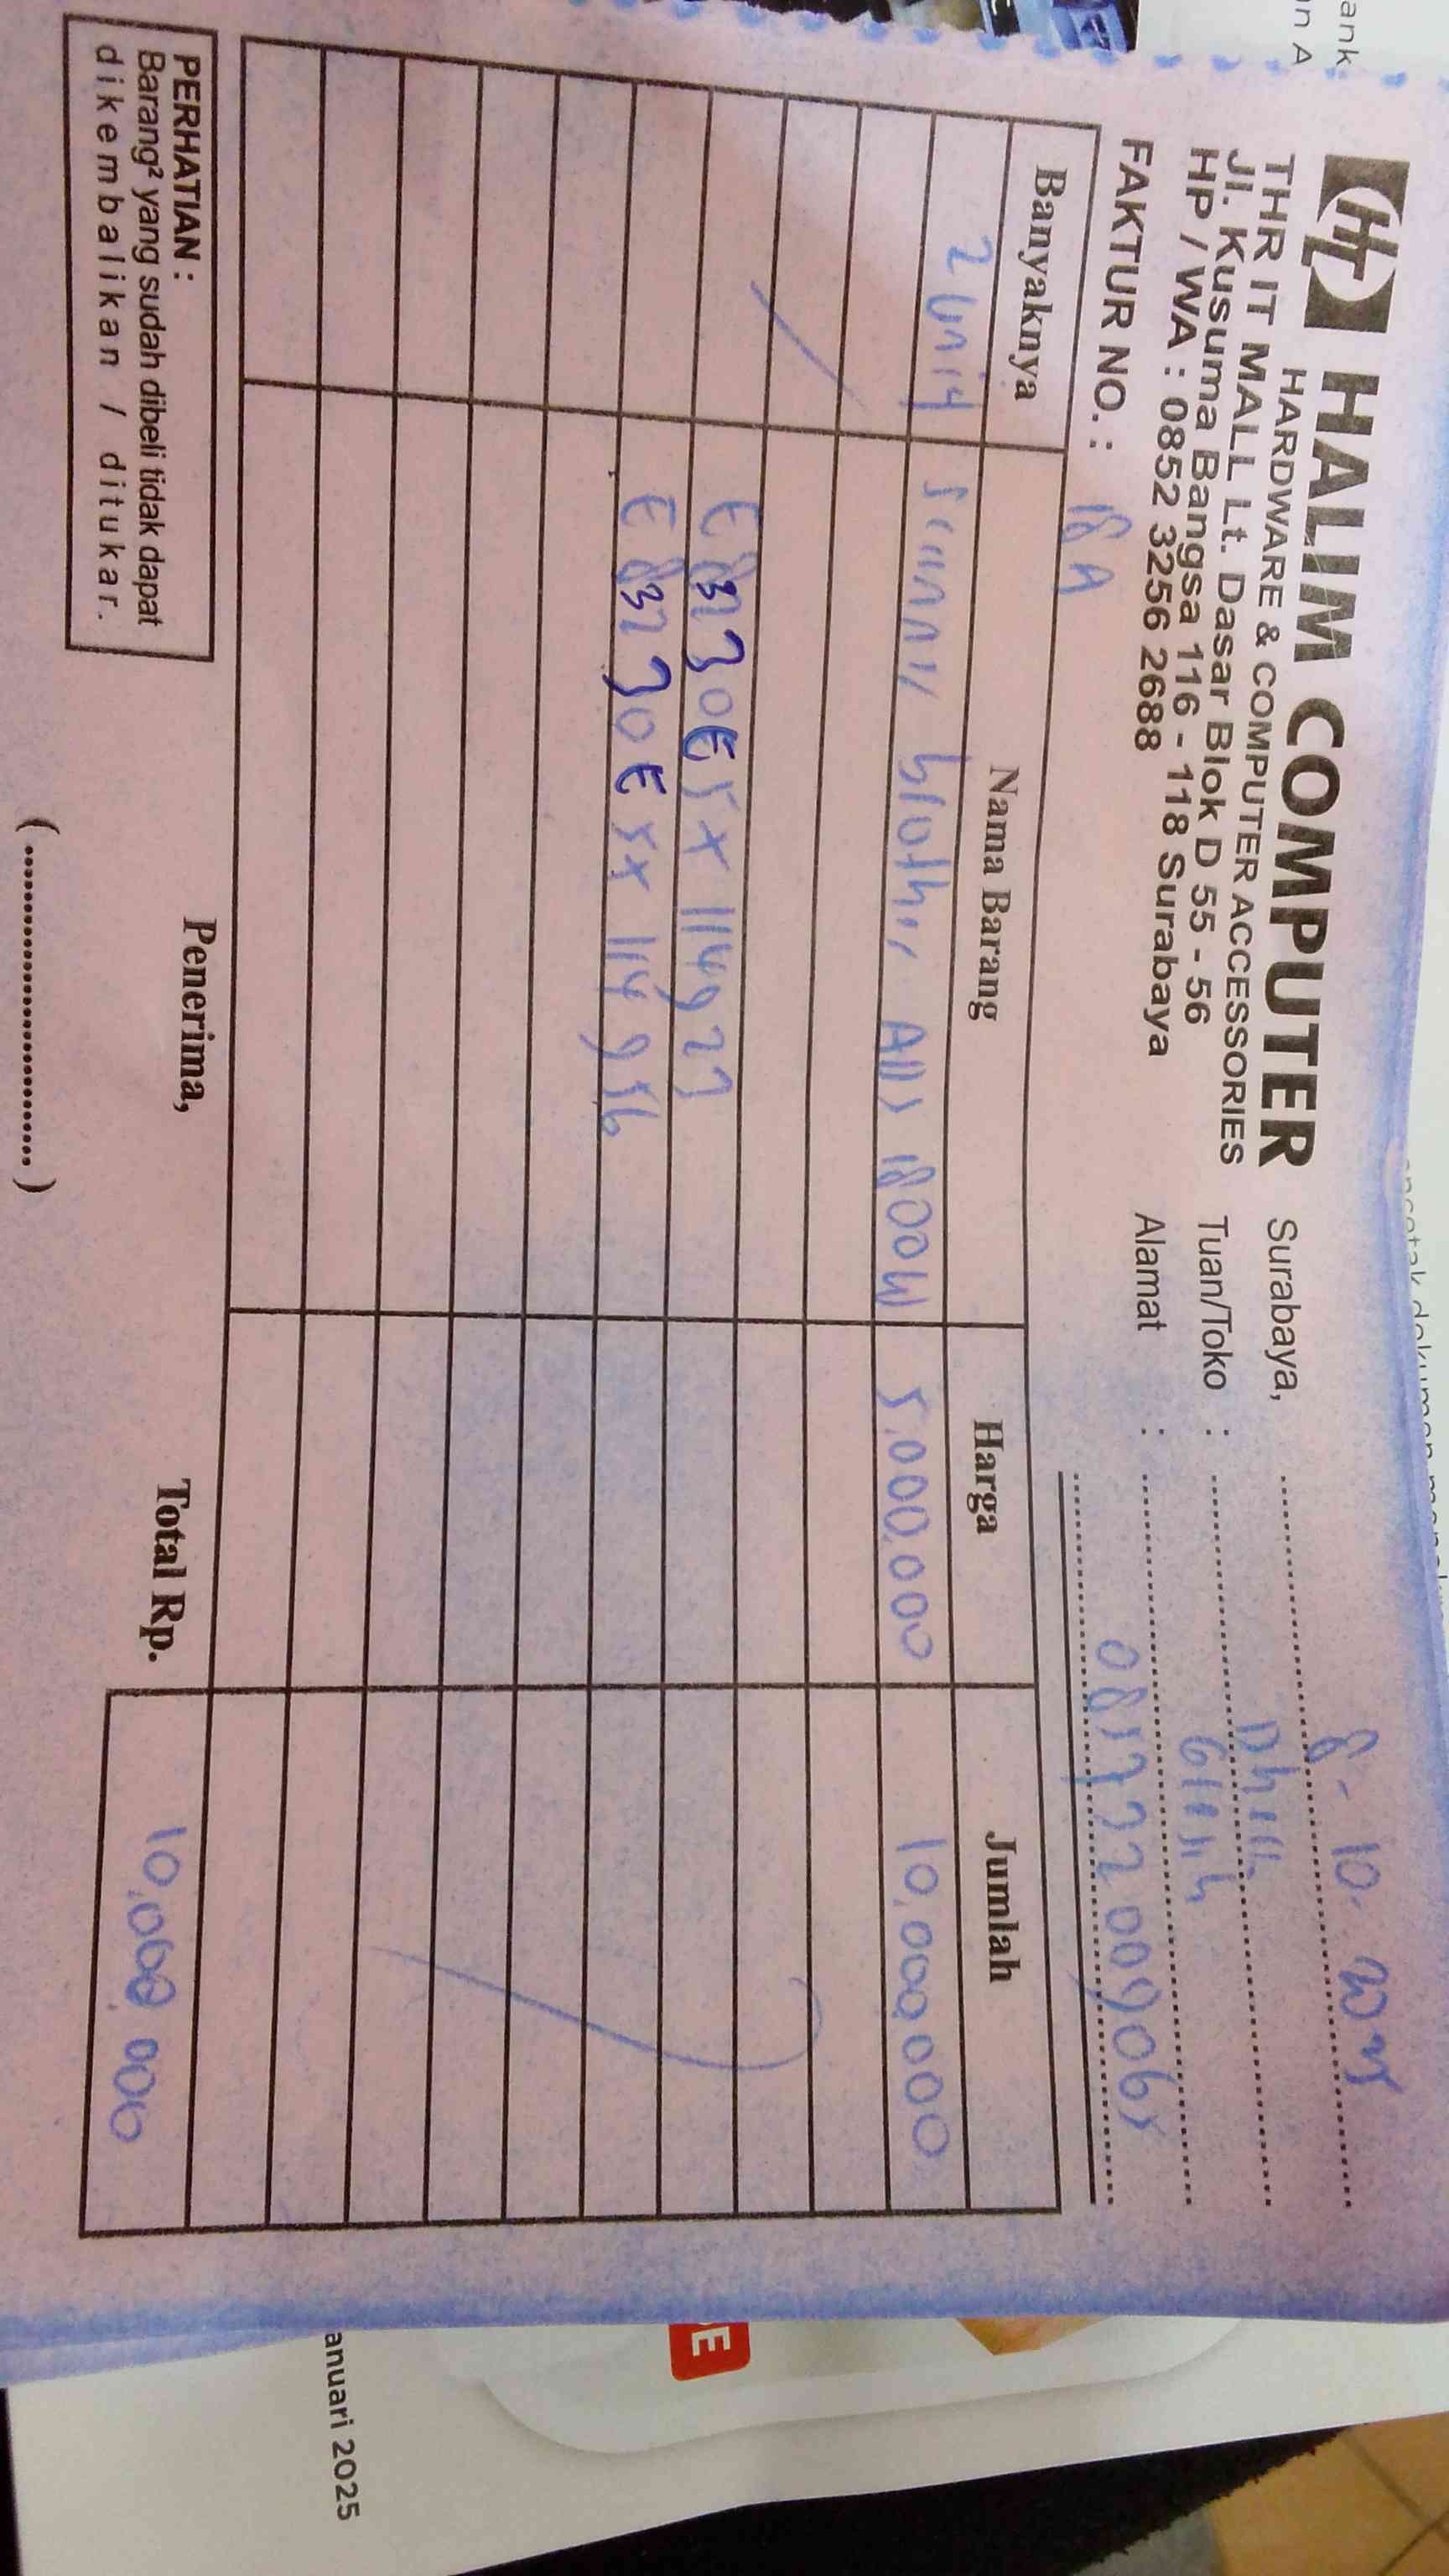 HALIM COMPUTER
HARDWARE & COMPUTER ACCESSORIES
THR IT MALL Lt. Dasar Blok D 55 - 56
Jl. Kusuma Bangsa 116 - 118 Surabaya
HP / WA : 0852 3256 2688
FAKTUR NO. : 18A
Surabaya, 8 - 10. 2025
Tuan/Toko :
Alamat :
Banyaknya Nama Barang Harga Jumlah
2 unit Scanner brother ADS 1800W 5.000.000 10.000.000
Total Rp. 10.000 000
Penerima,
(........................)
PERHATIAN :
Barang² yang sudah dibeli tidak dapat
dikembalikan / ditukar.
anuari 2025